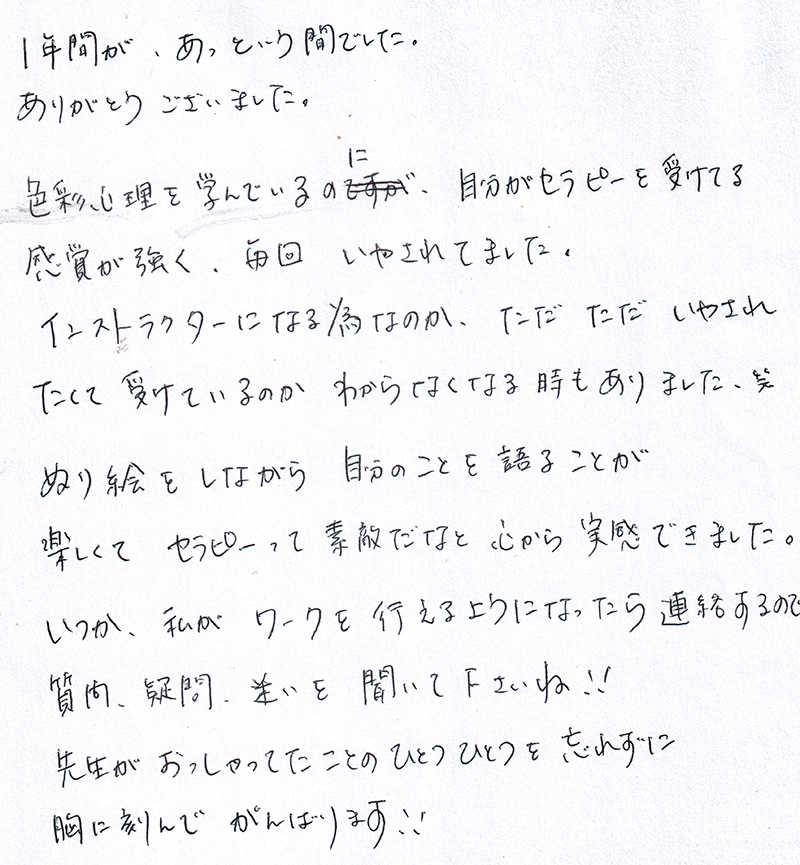 1年間が、あっという間でした。
ありがとうございました。
色彩心理を学んでいるのに、自分がセラピーを受けてる
感覚が強く、毎回 いやされてました。
インストラクターになる為なのか、ただ ただ いやされ
たくて 受けているのか わからなくなる時もありました、笑
ぬり絵を しながら 自分のことを 語ることが
楽しくて セラピーって 素敵だなと 心から 実感できました。
いつか、私が ワークを 行えるようになったら 連絡するので
質問、疑問、迷いを 聞いて下さいね!!
先生が おっしゃってたことの ひとつひとつを 忘れずに
胸に刻んで がんばります!!